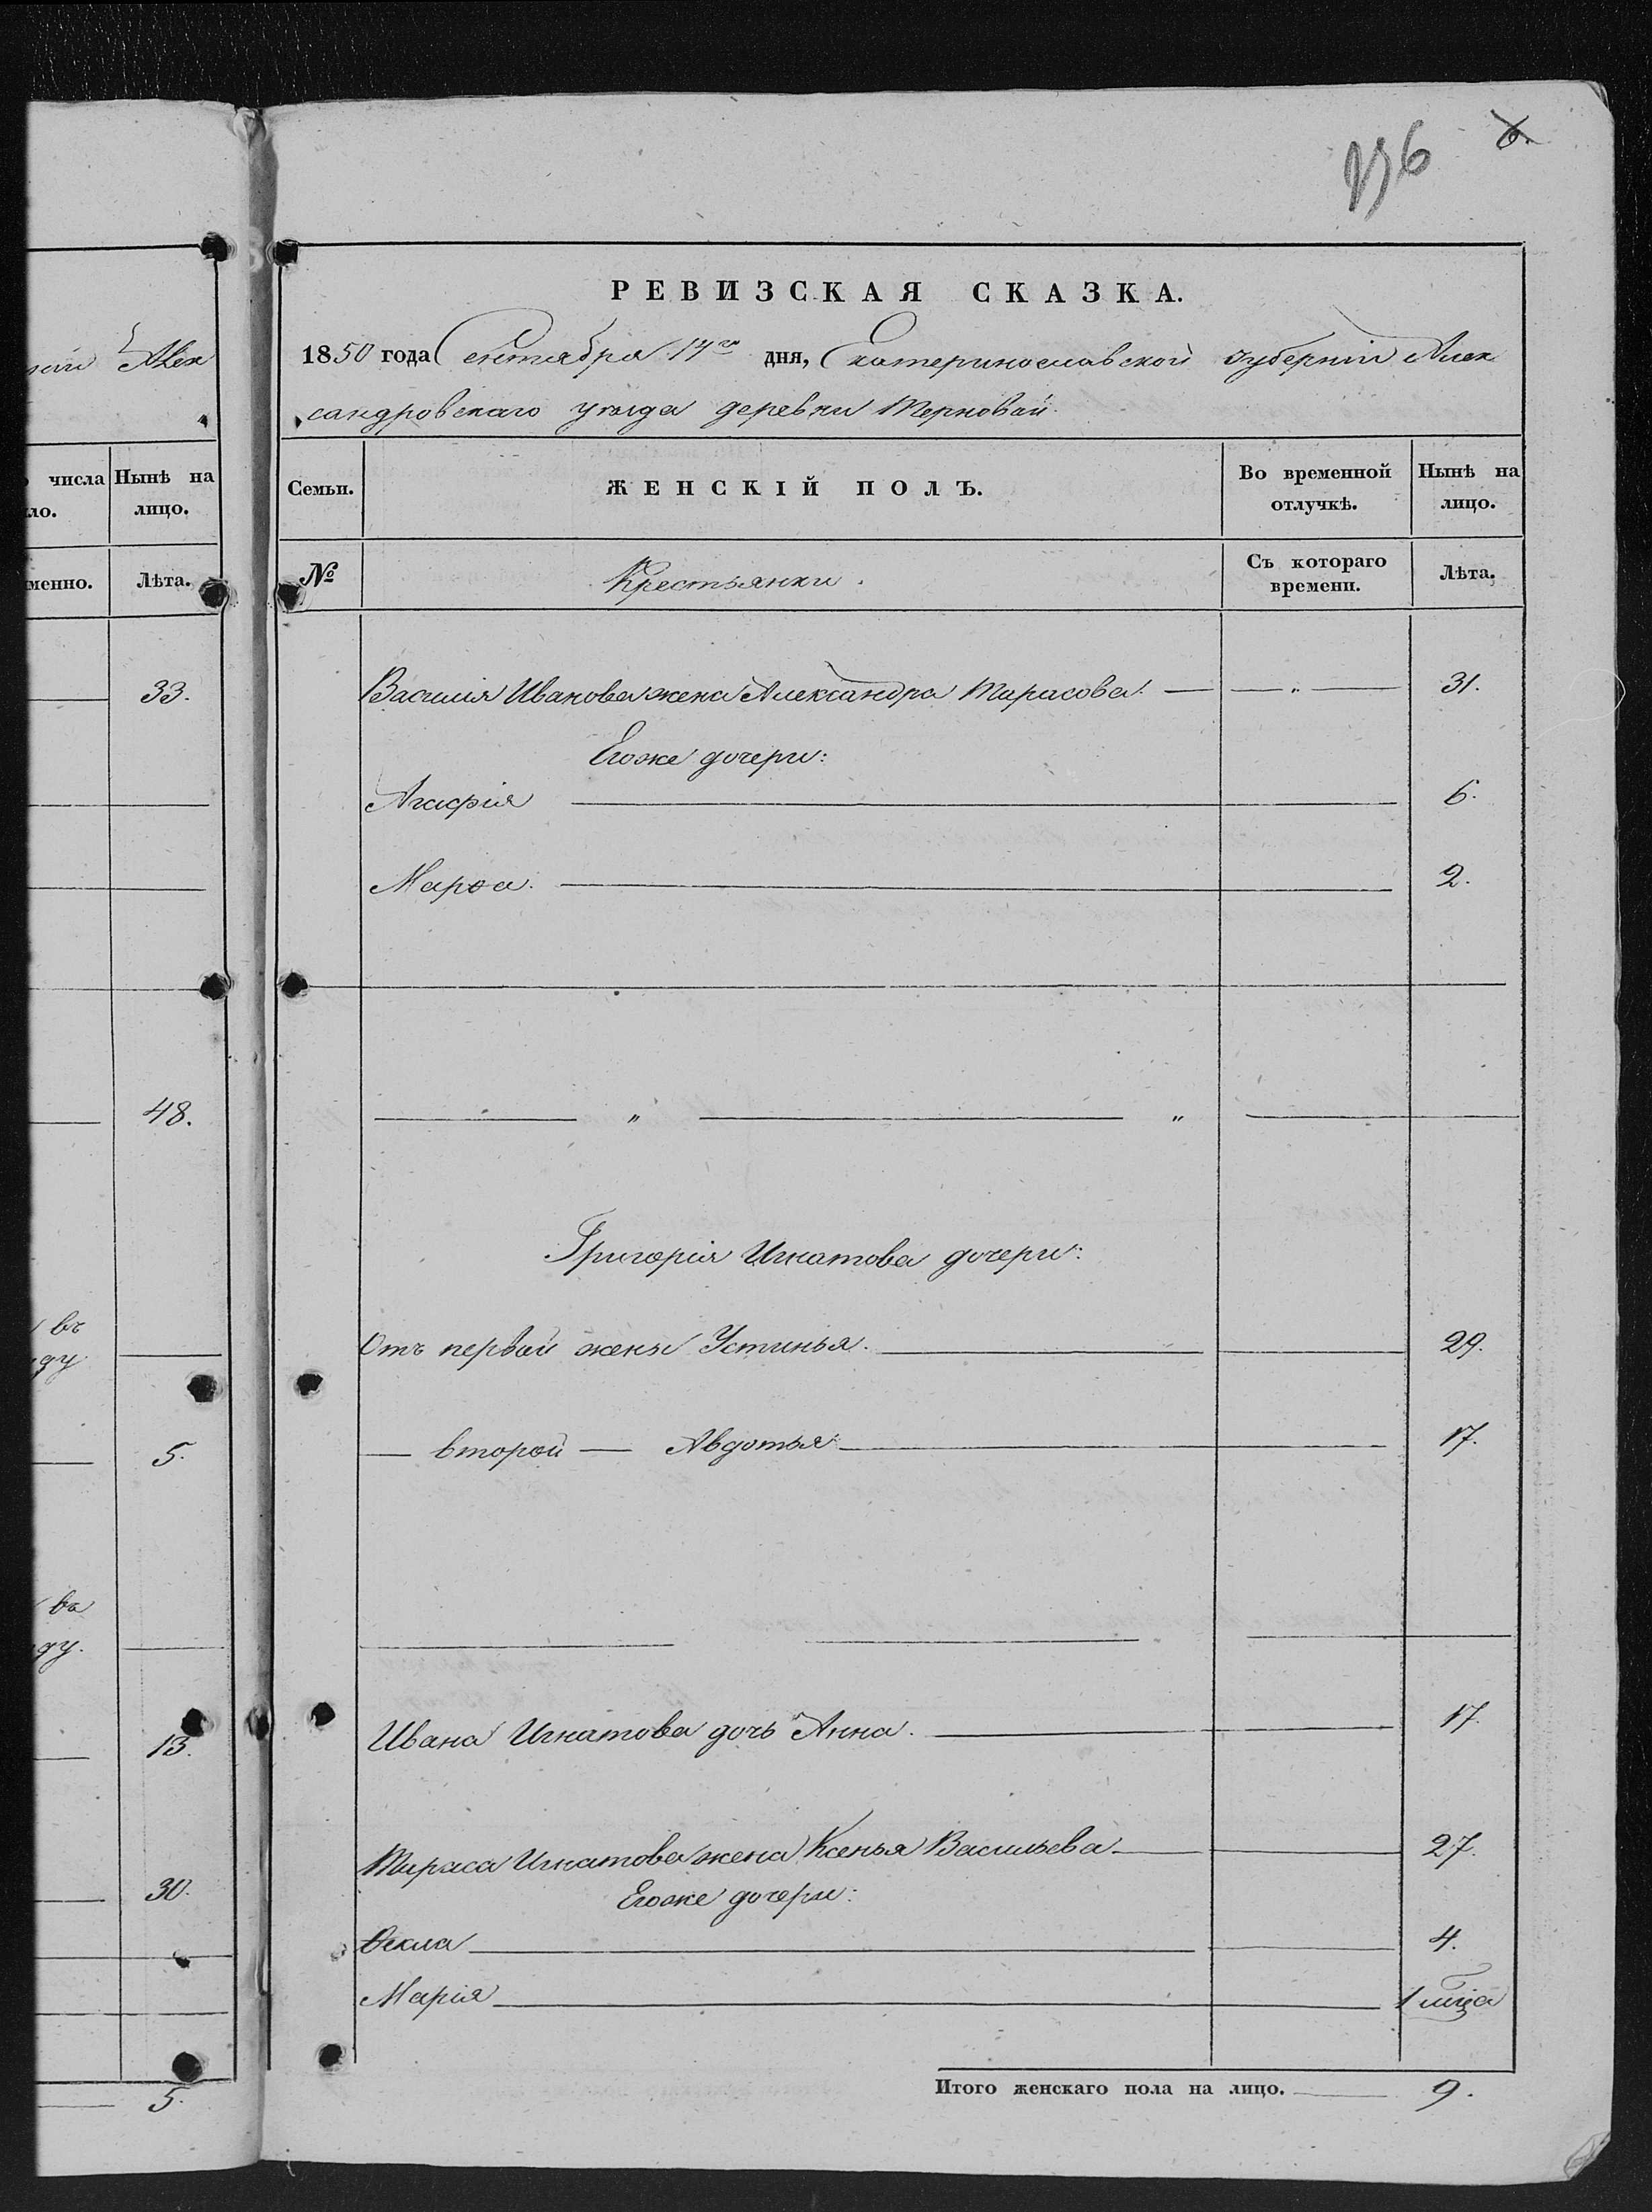 236 6.
РЕВИЗСКАЯ СКАЗКА.
1850 года Сентября 17го дня, Екатеринославской губерніи Алек
сандровскаго уѣзда деревни Терновой.
Алек
числа Нынѣ на
ло. лицо.
менно. Лѣта.
33.
48.
въ
ду
5.
въ
ду.
13.
30.
5.
Семьи. ЖЕНСКІЙ ПОЛЪ. Во временной отлучкѣ. Нынѣ на лицо.
№ Крестьянки. Съ котораго времени. Лѣта.
Василія Иванова жена Александра Тарасова. — — „ — 31.
Егоже дочери:
Агафія 6.
Марѳа. 2.
„ „
Григорія Игнатова дочери:
Отъ первой жены Устинья. 29.
— второй — Авдотья 17.
Ивана Игнатова дочь Анна. 17.
Тараса Игнатова жена Ксенья Васильева 27.
Егоже дочери:
Ѳекла 4.
Марія 1 мѣца
Итого женскаго пола на лицо. 9.